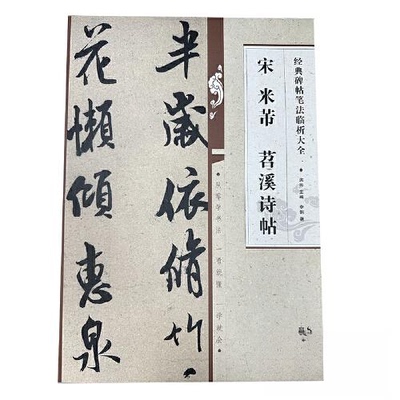 经典碑帖笔法临析大全
宋 米芾 苕溪诗帖
从笔学书法 一看就懂 一学就会
半岁依修竹
花懒倾惠泉